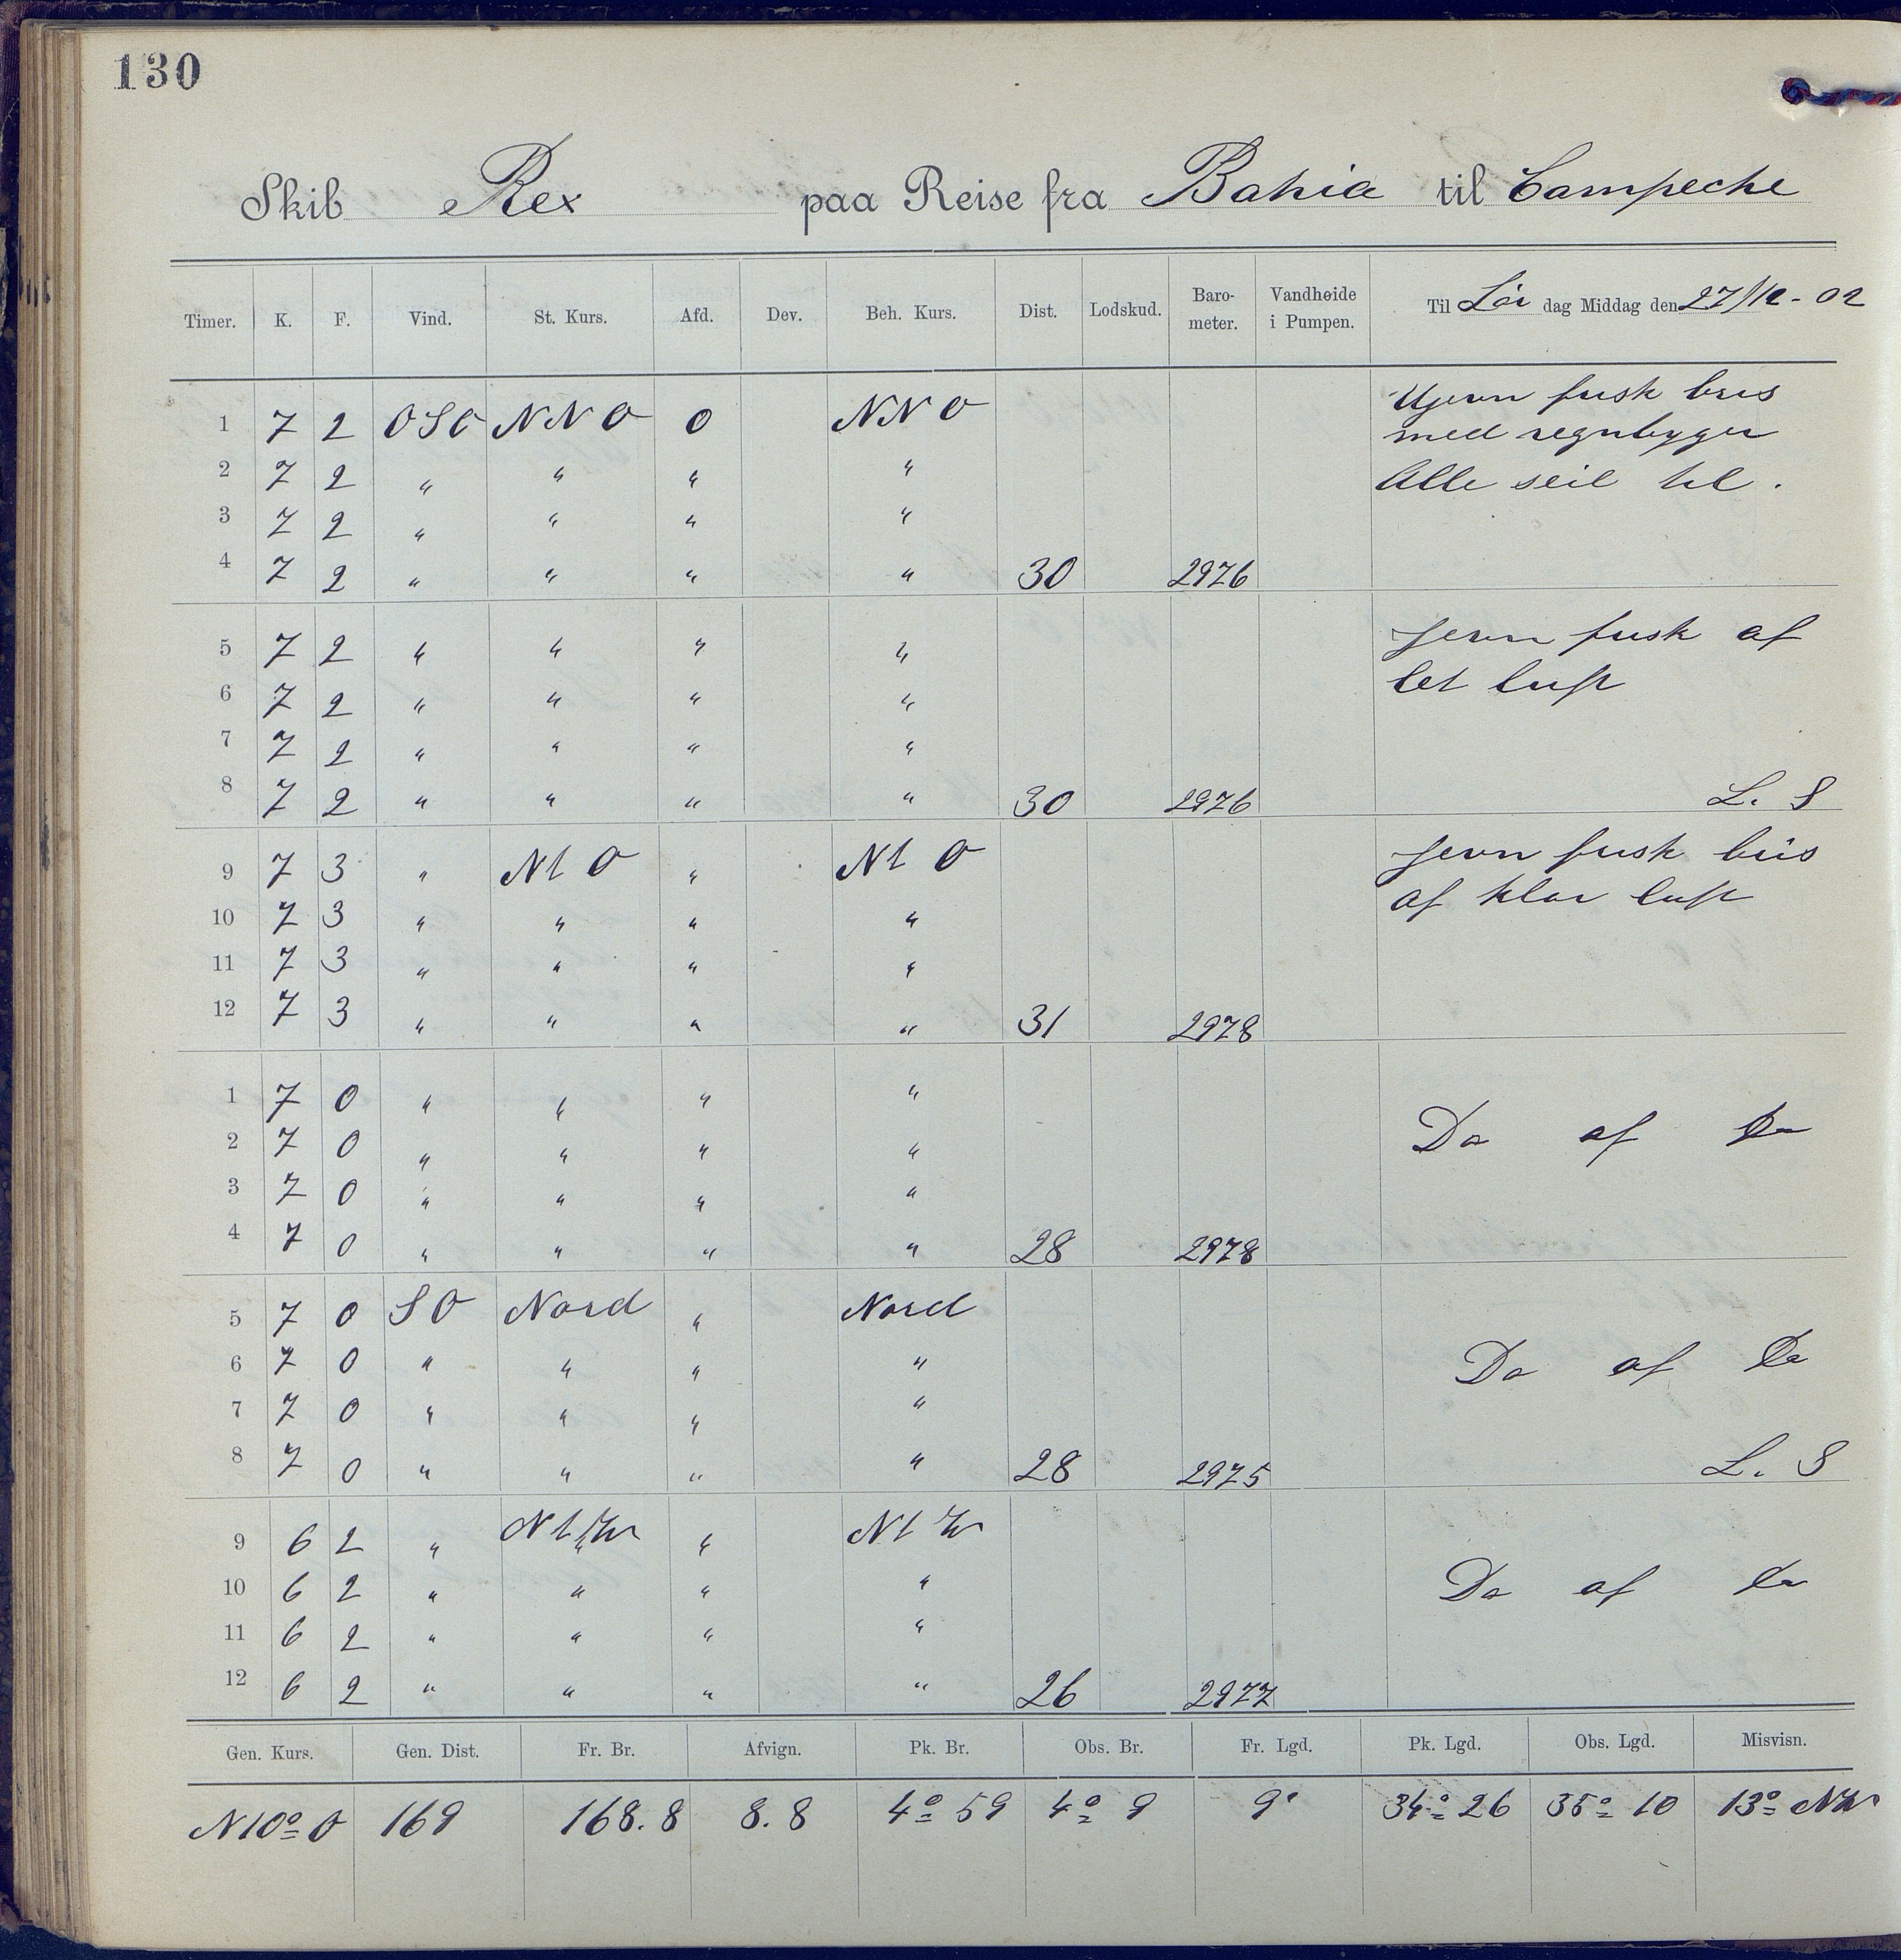 130
Skib Rex paa Reise fra Bahia til Campeche
Timer. K. F. Vind. St. Kurs. Afd. Dev. Beh. Kurs. Dist. Lodskud. Baro-meter. Vandhøide i Pumpen. Til Lör dag Middag den 27/12-02
1 7 2 OSO NNO 0 NNO Ujevn frisk bris
med regnbyger
2 7 2 " " " " Alle seil til.
3 7 2 " " " "
4 7 2 " " " " 30 2976
5 7 2 " " " " Jevn frisk af
6 7 2 " " " " let luft
7 7 2 " " " "
8 7 2 " " " " 30 2976 L. S
9 7 3 " Nt O " Nt O Jevn frisk bris
10 7 3 " " " " af klar luft
11 7 3 " " " "
12 7 3 " " " " 31 2978
1 7 0 " " " "
2 7 0 " " " " Do af Do
3 7 0 " " " "
4 7 0 " " " " 28 2978
5 7 0 SO Nord " Nord
6 7 0 " " " " Do af Do
7 7 0 " " " "
8 7 0 " " " " 28 2975 L. S
9 6 2 " Nt W " Nt W
10 6 2 " " " " Do af Do
11 6 2 " " " "
12 6 2 " " " " 26 2977
Gen. Kurs. Gen. Dist. Fr. Br. Afvign. Pk. Br. Obs. Br. Fr. Lgd. Pk. Lgd. Obs. Lgd. Misvisn.
N 10° O 169 168.8 8.8 4° 59 4° 9 9' 34° 26 35° 10 13° NW